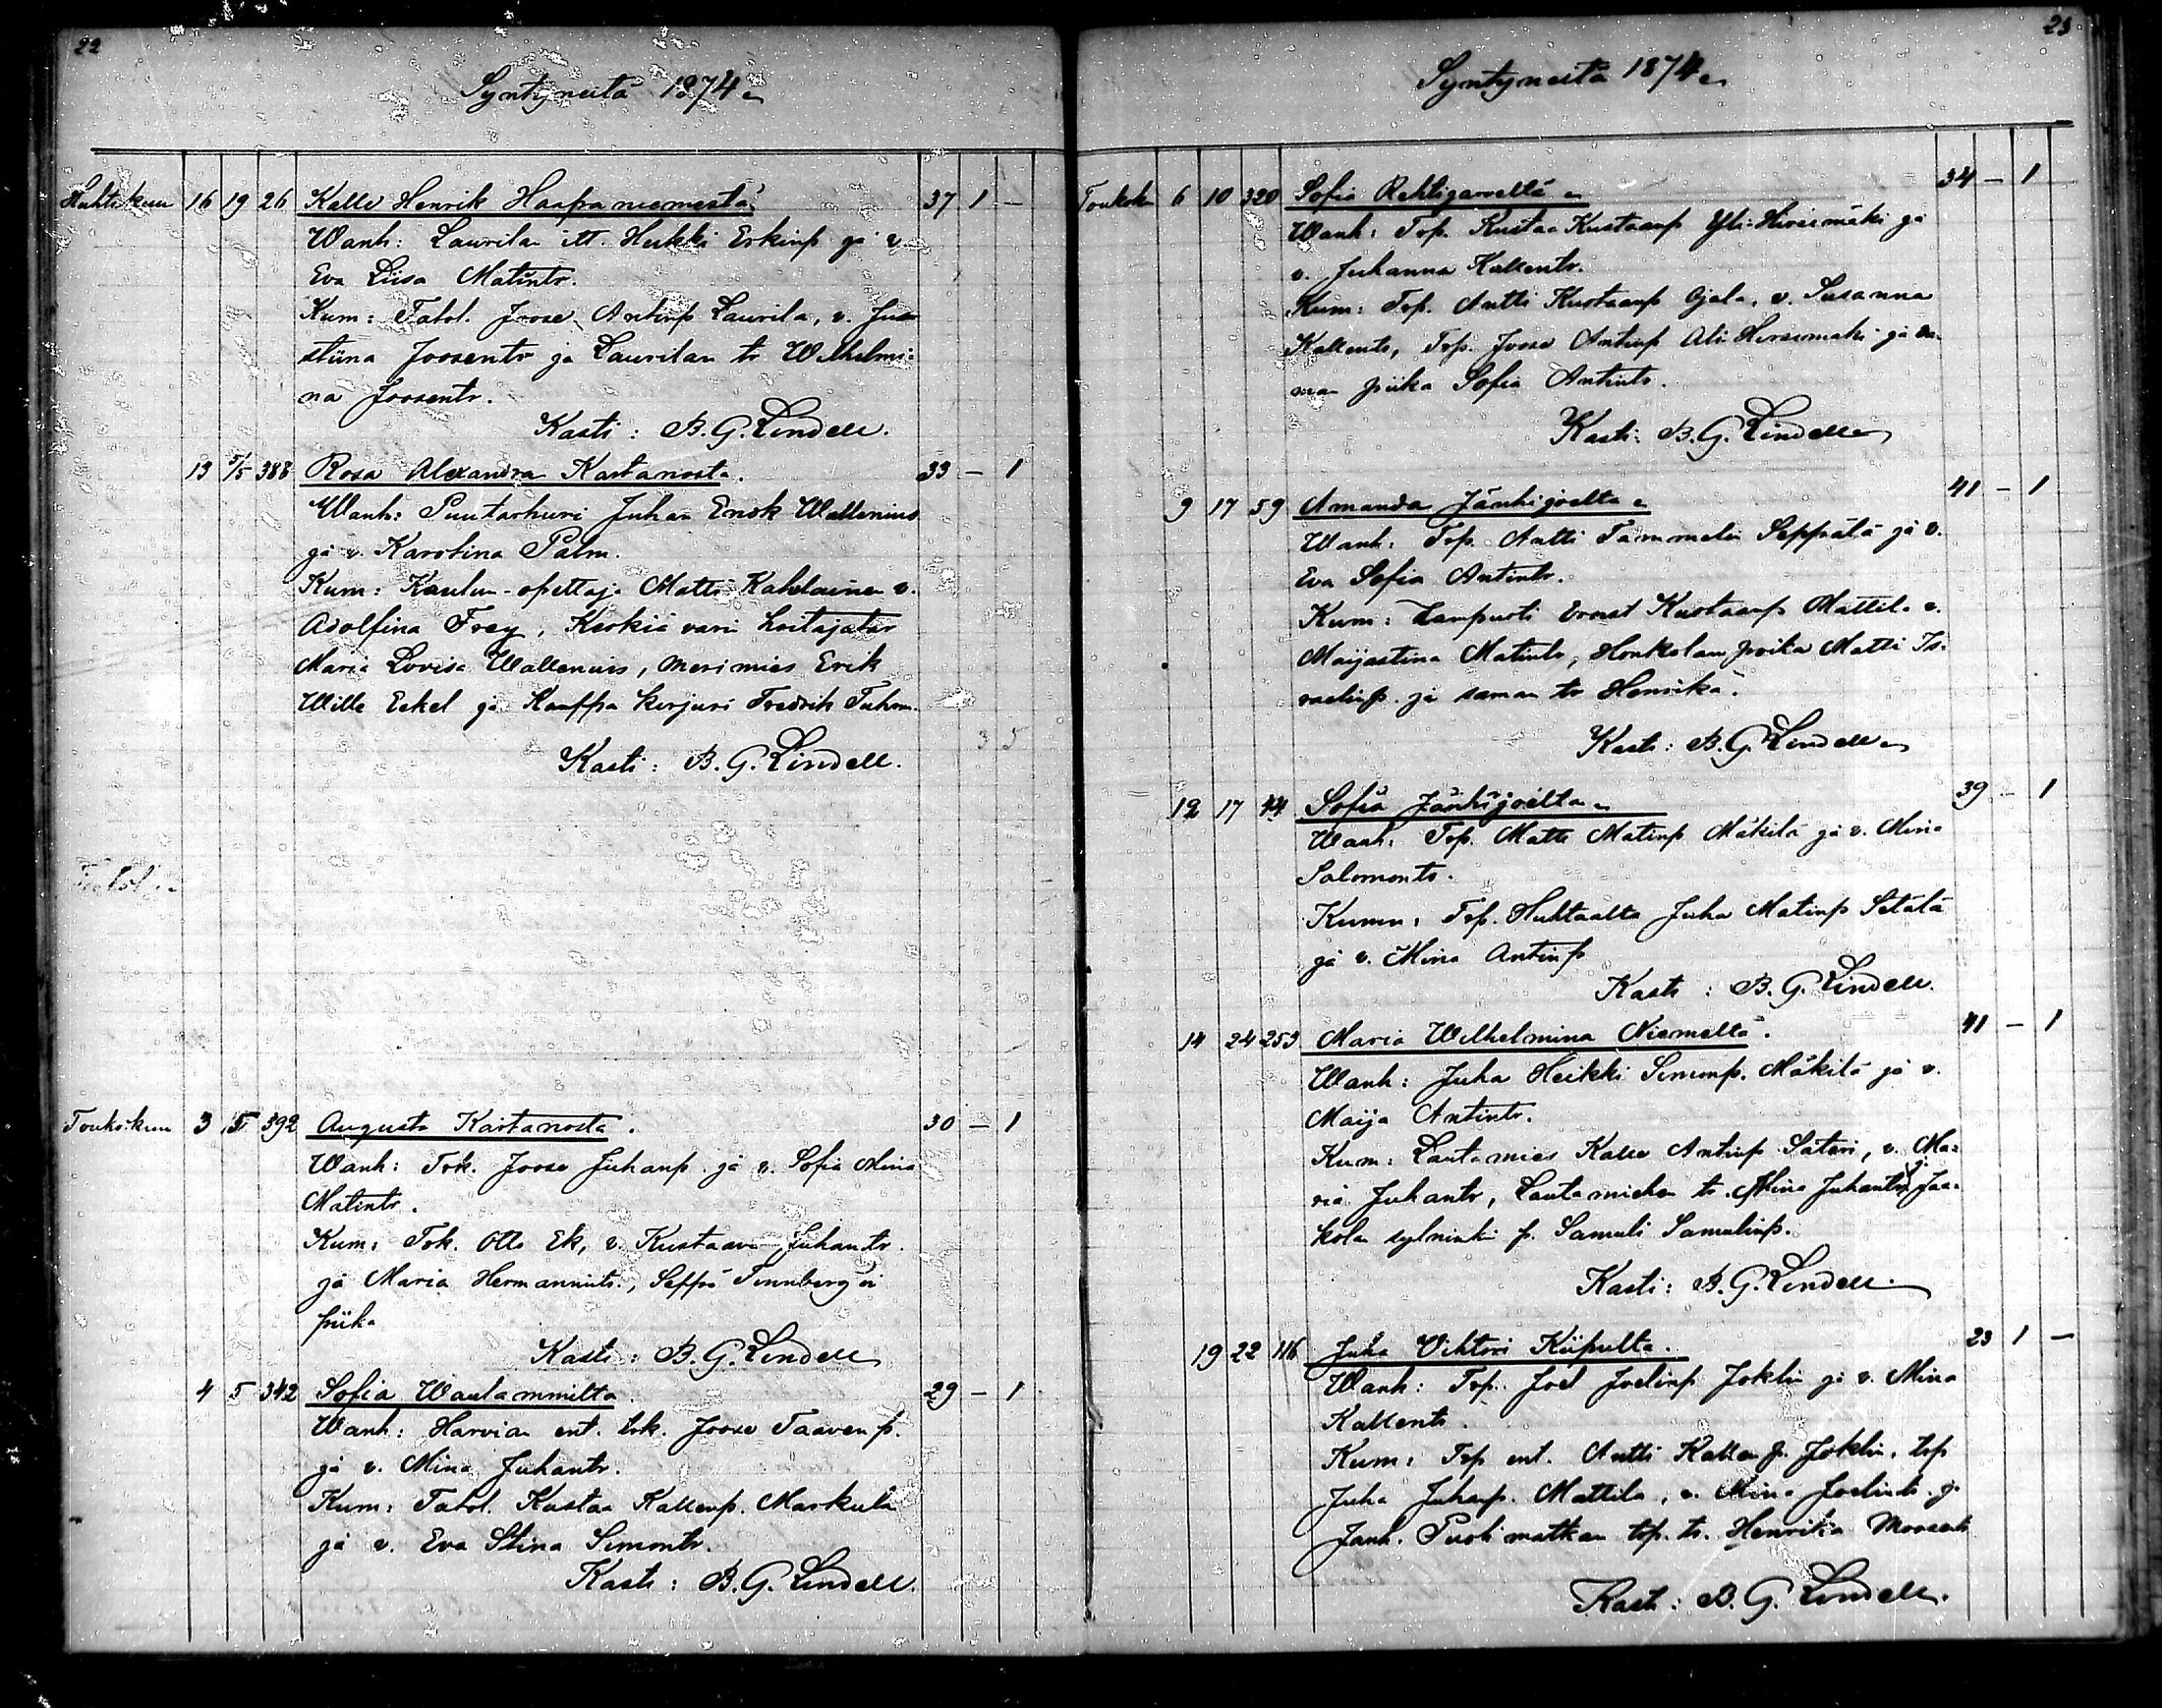 22
Syntyneitä 1874
Huhtikuu 16 19 26 Kalle Henrik Haapaniemestä 37 1 –
Wanh: Laurilan itt. Heikki Erkinp. ja v.
Eva Liisa Matintr.
Kum: Talol. Joose Antinp Laurila, v. Ju
stiina Joosentr ja Laurilan tr Wilhelmi=
na Joosentr.
Kasti: B. G. Lindell.
13 5/5 388 Rosa Alexandra Kartanosta. 33 – 1
Wanh: Puutarhuri Juhan Erick Wallenius
ja v. Karolina Palm.
Kum: Koulun-opettaja Matti Kahelainen v.
Adolfina Frey, hoitajatar
Maria Lovisa Wallenius, merimies Erik
Wille Eekel ja Kauppa kirjuri Fredrik
35
Kasti: B. G. Lindell.
Toukokuu 3 5 392 Augusta Kartanosta. 30 – 1
Wanh: Tork. Joose Juhanp. ja v. Sofia Mina
Matintr.
Kum: Tork. Otto Ek, v. Kustaava Juhantr.
ja Maria Hermannintr., Seppä Tennberg in
piika
Kasti: B. G. Lindell
4 5 342 Sofia Wautammilta. 29 – 1
Wanh: Harvian ent. tork. Joose Taavenp.
ja v. Mina Juhantr.
Kum: Talol. Kustaa Kallenp. Markula
ja v. Eva Stina Simontr.
Kasti: B. G. Lindell.
23
Syntyneitä 1874
Toukok 6 10 320 Sofia Rehtijärveltä 34 – 1
Wanh: Trp. Kustaa Kustaanp Yli-Hirsimäki ja
v. Juhanna Kallentr.
Kum: Trp. Antti Kustaanp Ojala, v. Susanna
Kallentr, Trp. Joose Antinp Ali-Hirsimäki ja sa-
man piika Sofia Antintr.
Kasti: B. G. Lindell
9 17 59 Amanda Jänhijoelta 41 – 1
Wanh. Trp. Antti Tammelin Seppälä ja v.
Eva Sofia Antintr.
Kum: Lampuoti Ernst Kustaanp Mattila v.
Maijastina Matintr, Honkolan poika Matti Is-
raelinp. ja saman tr Henrika.
Kasti: B. G. Lindell
12 17 44 Sofia Jänhijoelta 39 – 1
Wanh. Trp. Matti Matinp Mäkilä ja v. Mina
Salomontr.
Kumm: Trp. Huhtaalta Juha Matinp Setälä
ja v. Mina Antinp
Kasti: B. G. Lindell.
14 24 253 Maria Wilhelmina Niemeltä. 41 – 1
Wanh: Juha Heikki Simonp. Mäkilä ja v.
Maija Antintr.
Kum: Lautamies Kalle Antinp Sateri, v. Ma=
ria Juhantr, Lautamiehen tr. Mina Juhantr ja Jaa-
kolan p. Samuli Samulinp.
Kasti: B. G. Lindell.
19 22 116 Juha Vihtori Kiipulta. 23 1 –
Wanh: Trp. Joel Joelinp Joklin ja v. Mina
Kallentr.
Kum: Trp ent. Antti Kallen p. Joklin, trp
Juha Juhanp. Mattila, v. Mina Joelintr. ja
Janh. Puoli matkan trp. tr. Henrika Moosentr
Kasti: B. G. Lindell.